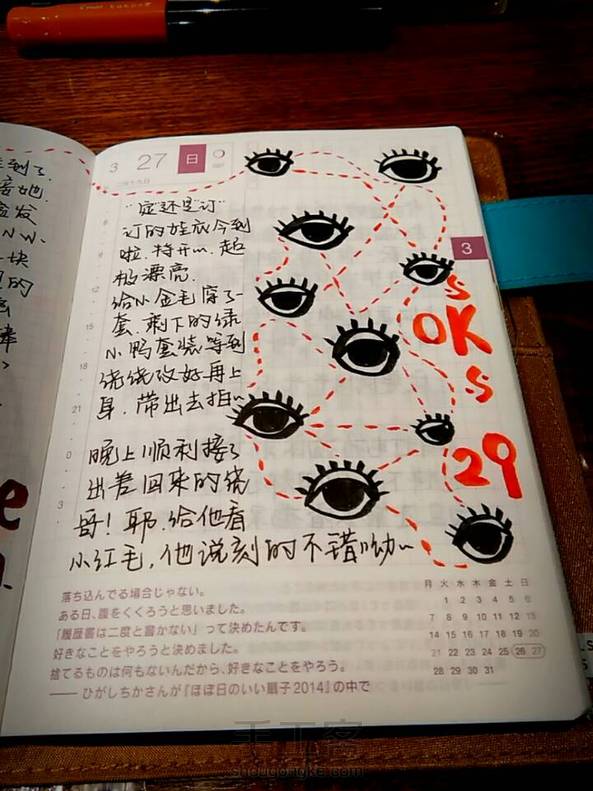 3 27 日
"症还是汀"
订的娃衣今到
啦.特开心.超
极漂亮.
给小金毛穿了一
套.剩下的绿
小鸭套装等到
绕绕改好再上
身.带出去拍~
晚上顺利接了
出差回来的绕
哥!耶.给他看
小红毛,他说刻的不错呦~
3
S
OK
S
29
6
9
12
15
18
21
0
3
落ち込んでる場合じゃない。
ある日、腹をくくろうと思いました。
「履歴書は二度と書かない」って決めたんです。
好きなことをやろうと決めました。
捨てるものは何もないんだから、好きなことをやろう。
―― ひがしちかさんが『ほぼ日のいい扇子2014』の中で
月 火 水 木 金 土 日
1 2 3 4 5 6
7 8 9 10 11 12 13
14 15 16 17 18 19 20
21 22 23 24 25 26 27
28 29 30 31
手工客
shougongke.com